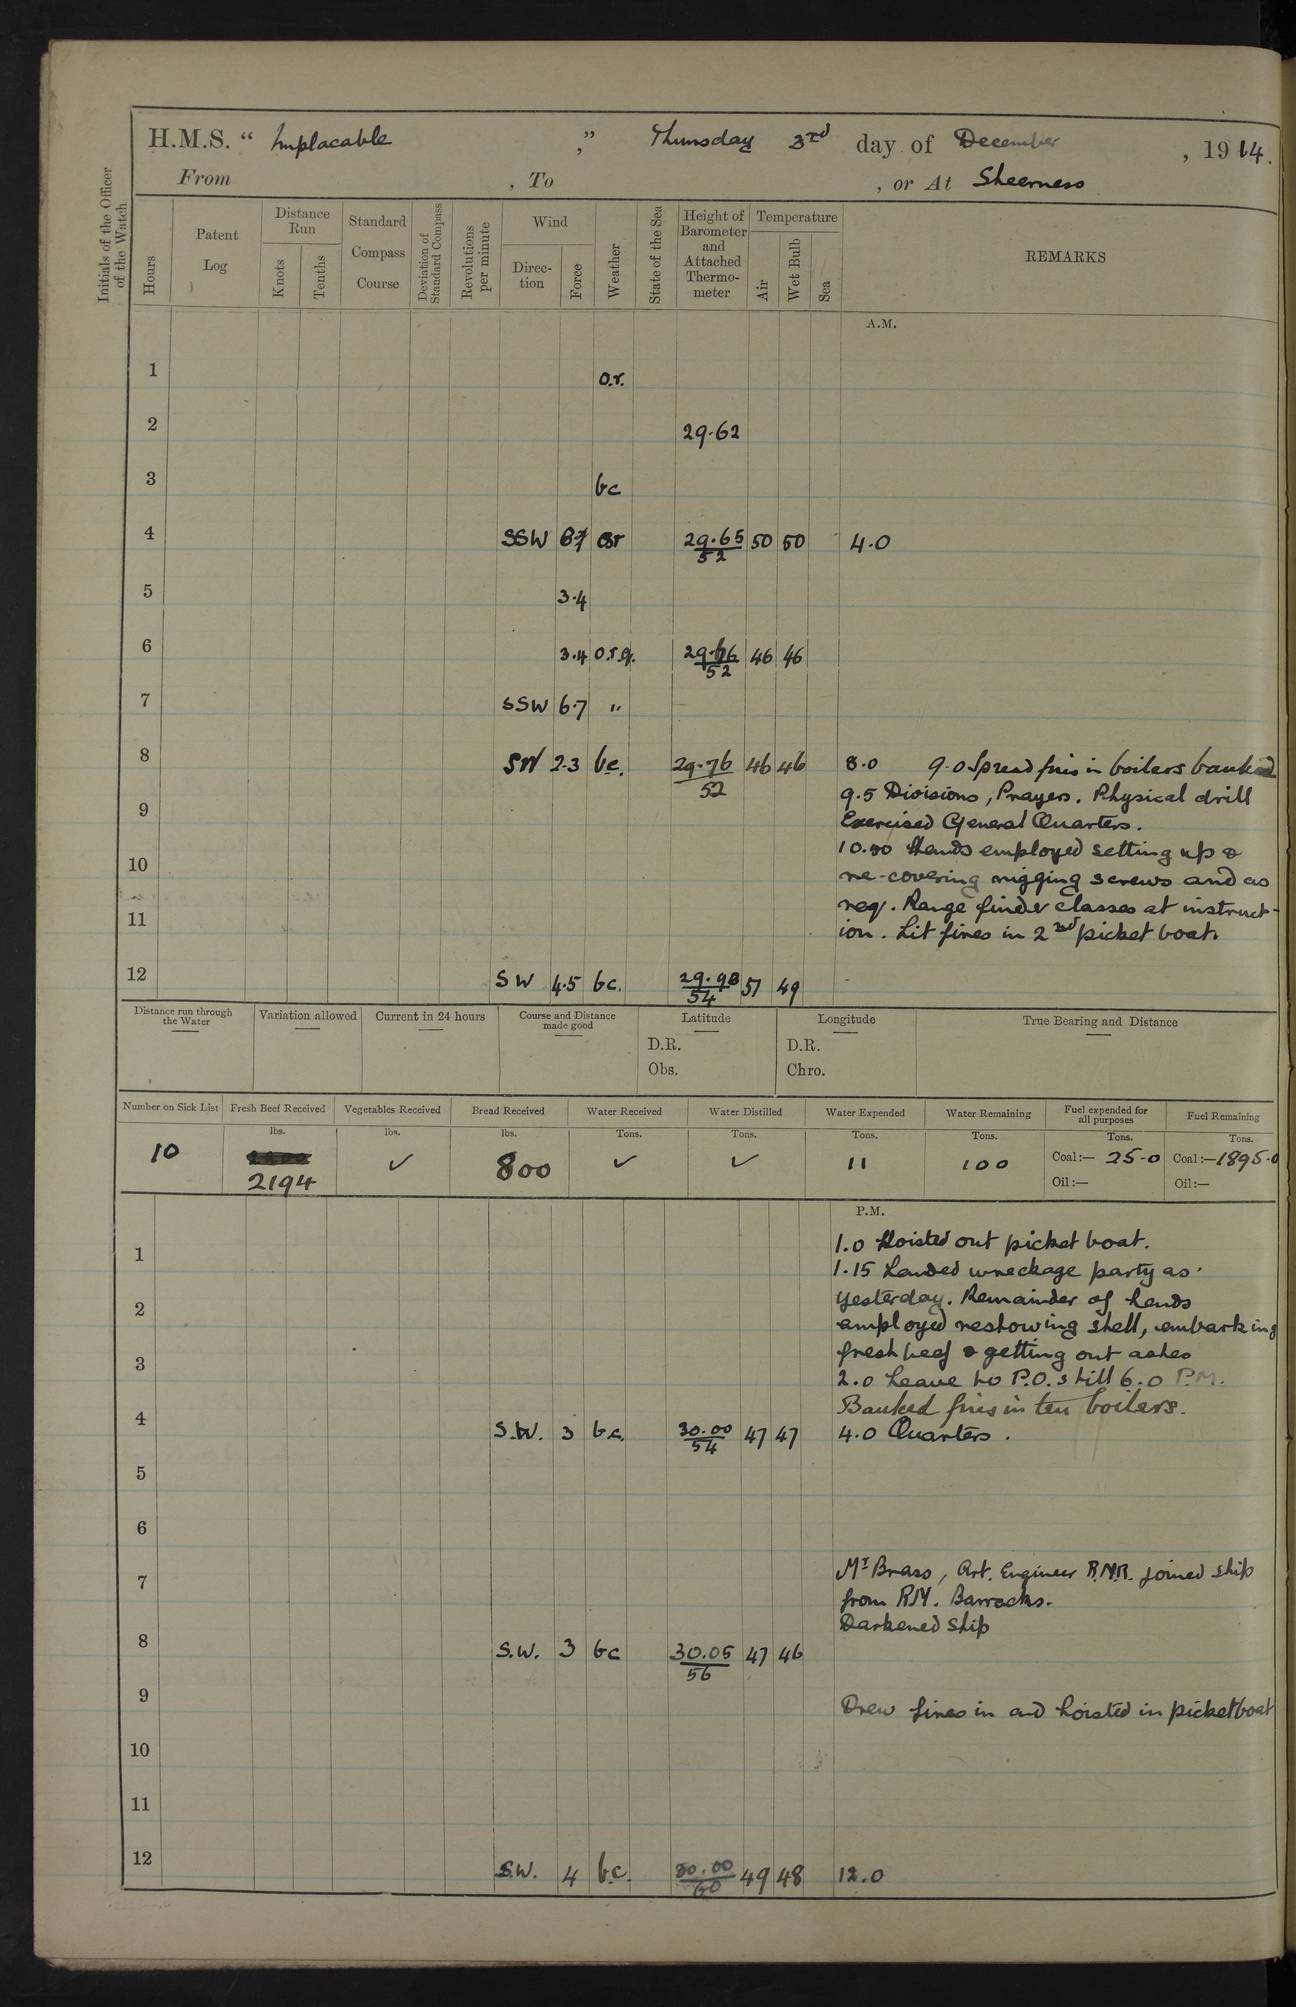 H.M.S. “ Implacable ,” Thursday 3rd day of December , 1914.
From , To , or At Sheerness
Initials of the Officer of the Watch
Hours
Patent Log
Distance Run
Knots
Tenths
Standard Compass Course
Deviation of Standard Compass
Revolutions per minute
Wind
Direc-tion
Force
Weather
State of the Sea
Height of Barometer and Attached Thermo-meter
Temperature
Air
Wet Bulb
Sea
REMARKS
A.M.
1 o.r.
2 29.62
3 bc
4 SSW 6.7 or 29.65/52 50 50 4.0
5 3.4
6 3.4 o.r.q. 29.66/52 46 46
7 SSW 6.7 "
8 SW 2.3 bc. 29.76/52 46 46 8.0 9.0 Spread fires in boilers banked
9.5 Divisions, Prayers. Physical drill
9
Exercised General Quarters.
10.00 Hands employed setting up &
10
re-covering rigging screws and as
req. Range finder classes at instruct-
11
ion. Lit fires in 2nd picket boat.
12 SW 4.5 bc. 29.98/54 51 49
Distance run through the Water
Variation allowed
Current in 24 hours
Course and Distance made good
Latitude
D.R.
Obs.
Longitude
D.R.
Chro.
True Bearing and Distance
Number on Sick List
Fresh Beef Received
Vegetables Received
Bread Received
Water Received
Water Distilled
Water Expended
Water Remaining
Fuel expended for all purposes
Fuel Remaining
lbs. lbs. lbs. Tons. Tons. Tons. Tons. Tons. Tons.
10 2194 ✓ 800 ✓ ✓ 11 100 Coal:— 25.0 Coal:— 1895.0
Oil:— Oil:—
P.M.
1.0 Hoisted out picket boat.
1
1.15 Landed wreckage party as
yesterday. Remainder of hands
2
employed restowing shell, embarking
fresh beef & getting out ashes
3
2.0 Leave to P.O.s till 6.0 P.M.
Banked fires in ten boilers.
4 S.W. 3 bc. 30.00/54 47 47 4.0 Quarters.
5
6
Mr Brass, Art. Engineer R.N.R. joined ship
7
from R.N. Barracks.
Darkened ship
8 S.W. 3 bc 30.05/56 47 46
9
Drew fires in and hoisted in picketboat
10
11
12 S.W. 4 bc. 30.00/60 49 48 12.0